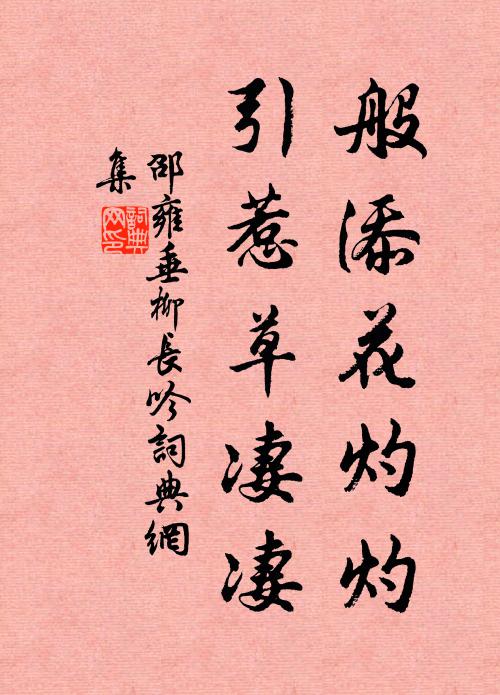 般添花灼灼
引惹草凄凄
邵雍垂柳長吟詞典網
集
詞典
网印